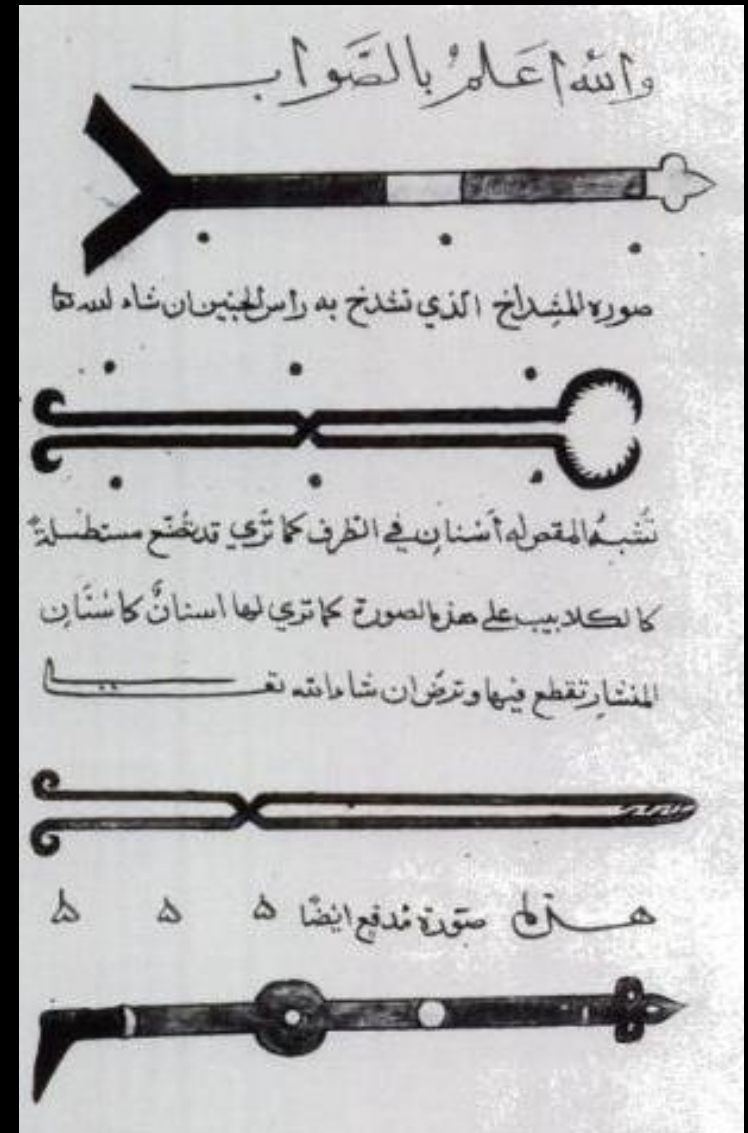 والله اعلم بالصواب
صوره المشداخ الذي تشدخ به راس الجنين ان شاء لله تعا
تُشبهُ المقص له أسْنان في الطرف كما تَري قد تُصْنع مستطيلةً
كالكلاليب علي هذه الصورة كما تري لها اسنانٌ كاسْنَانِ
المنشارِ تقطع فيها وترضُ ان شاء الله تعالي
هذه صَورَة مُدفع ايضًا ه ه ه